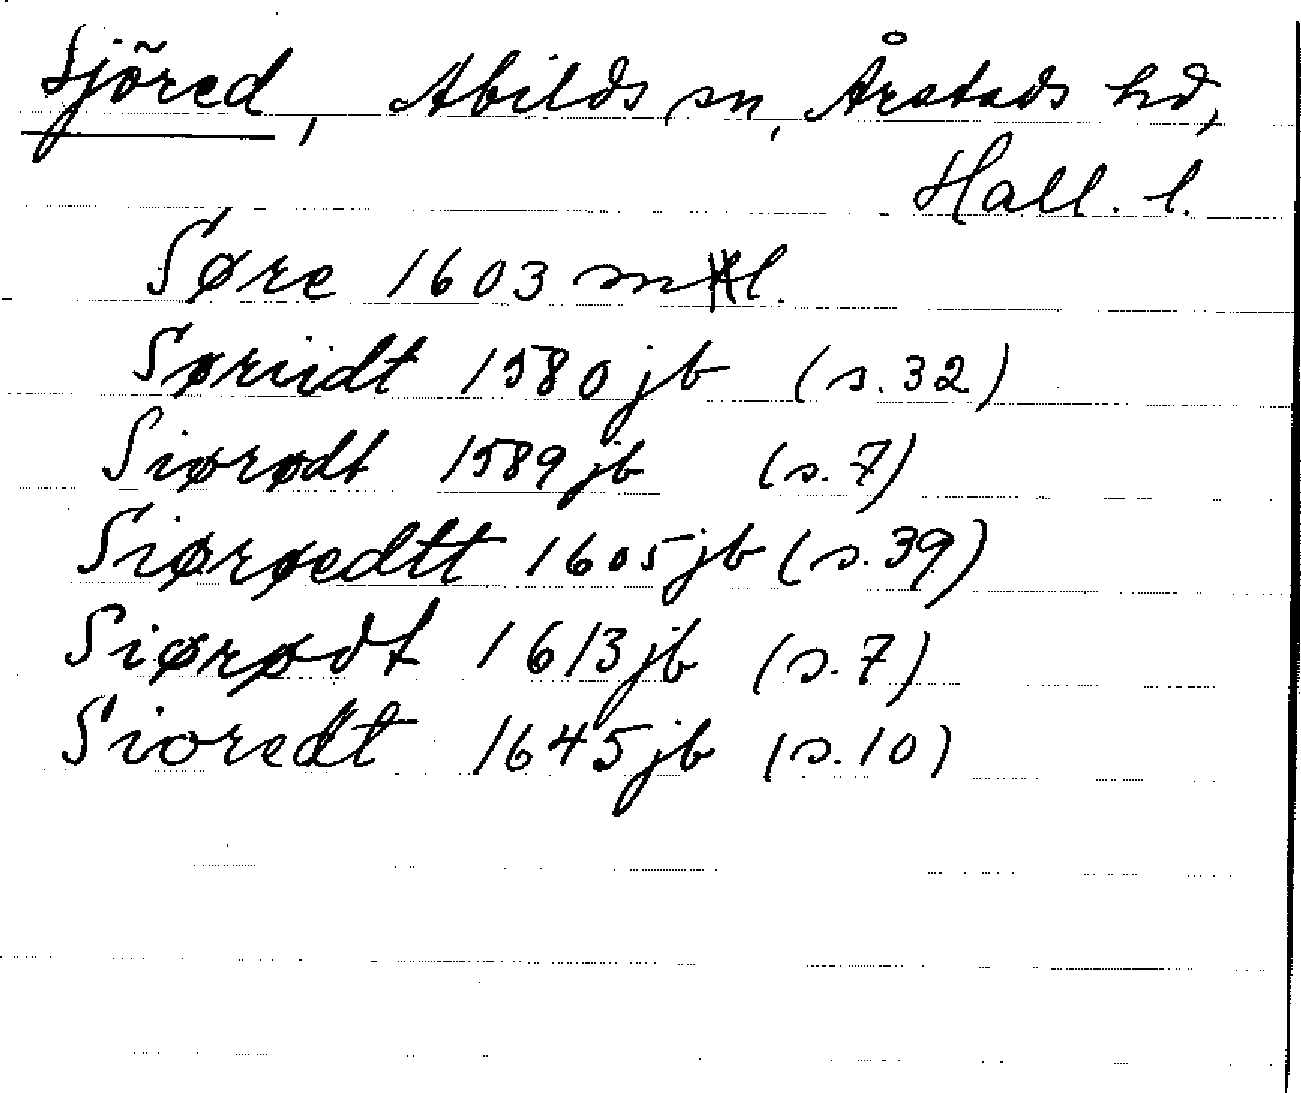 Sjöred, Abilds sn, Årstads hd,
Hall. l.
Søre 1603 mtl.
Søriidt 1580 jb (s. 32)
Siørødt 1589 jb (s. 7)
Siørøedtt 1605 jb (s. 39)
Siørødt 1613 jb (s. 7)
Sioredt 1645 jb (s. 10)